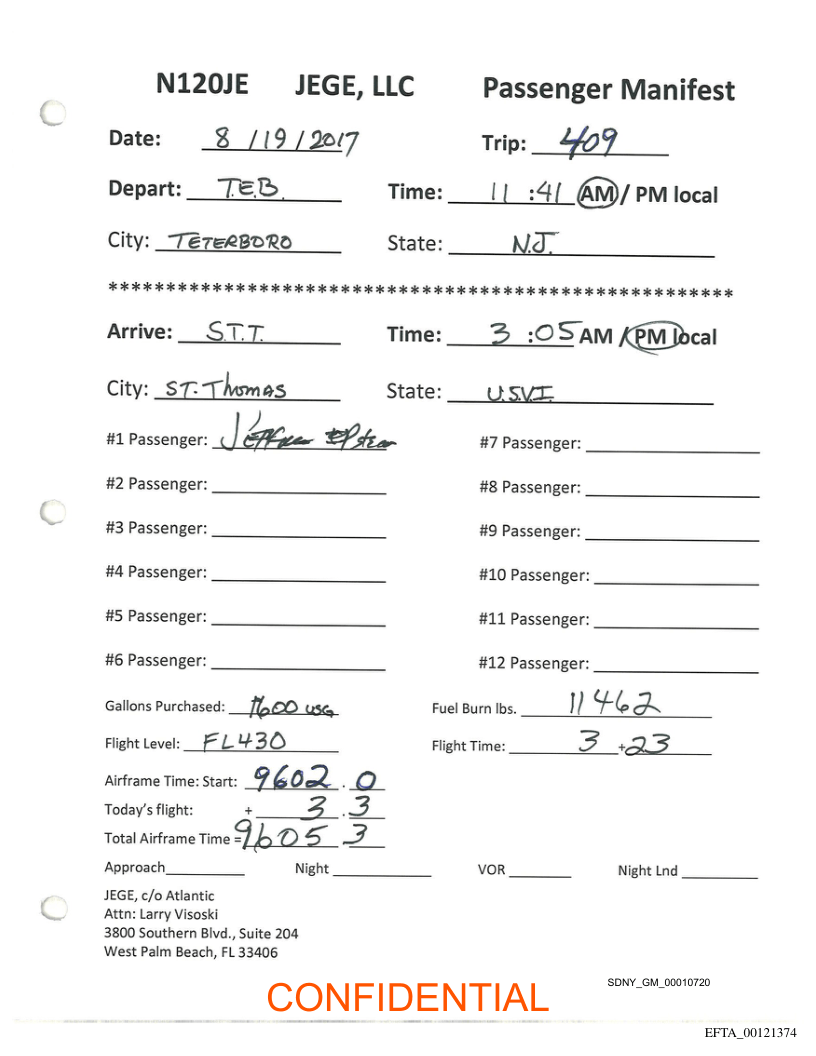 N120JE JEGE, LLC Passenger Manifest
Date: 8 /19 / 2017 Trip: 409
Depart: T.E.B. Time: 11 :41 AM / PM local
City: TETERBORO State: N.J.
******************************************************
Arrive: S.T.T. Time: 3 :05 AM / PM local
City: ST. Thomas State: U.S.V.I.
#1 Passenger: Jeffrey Epstein #7 Passenger:
#2 Passenger: #8 Passenger:
#3 Passenger: #9 Passenger:
#4 Passenger: #10 Passenger:
#5 Passenger: #11 Passenger:
#6 Passenger: #12 Passenger:
Gallons Purchased: 1600 USG Fuel Burn lbs. 11462
Flight Level: FL430 Flight Time: 3 + 23
Airframe Time: Start: 9602 . 0
Today's flight: + 3 . 3
Total Airframe Time = 9605 3
Approach Night VOR Night Lnd
JEGE, c/o Atlantic
Attn: Larry Visoski
3800 Southern Blvd., Suite 204
West Palm Beach, FL 33406
SDNY_GM_00010720
CONFIDENTIAL
EFTA_00121374